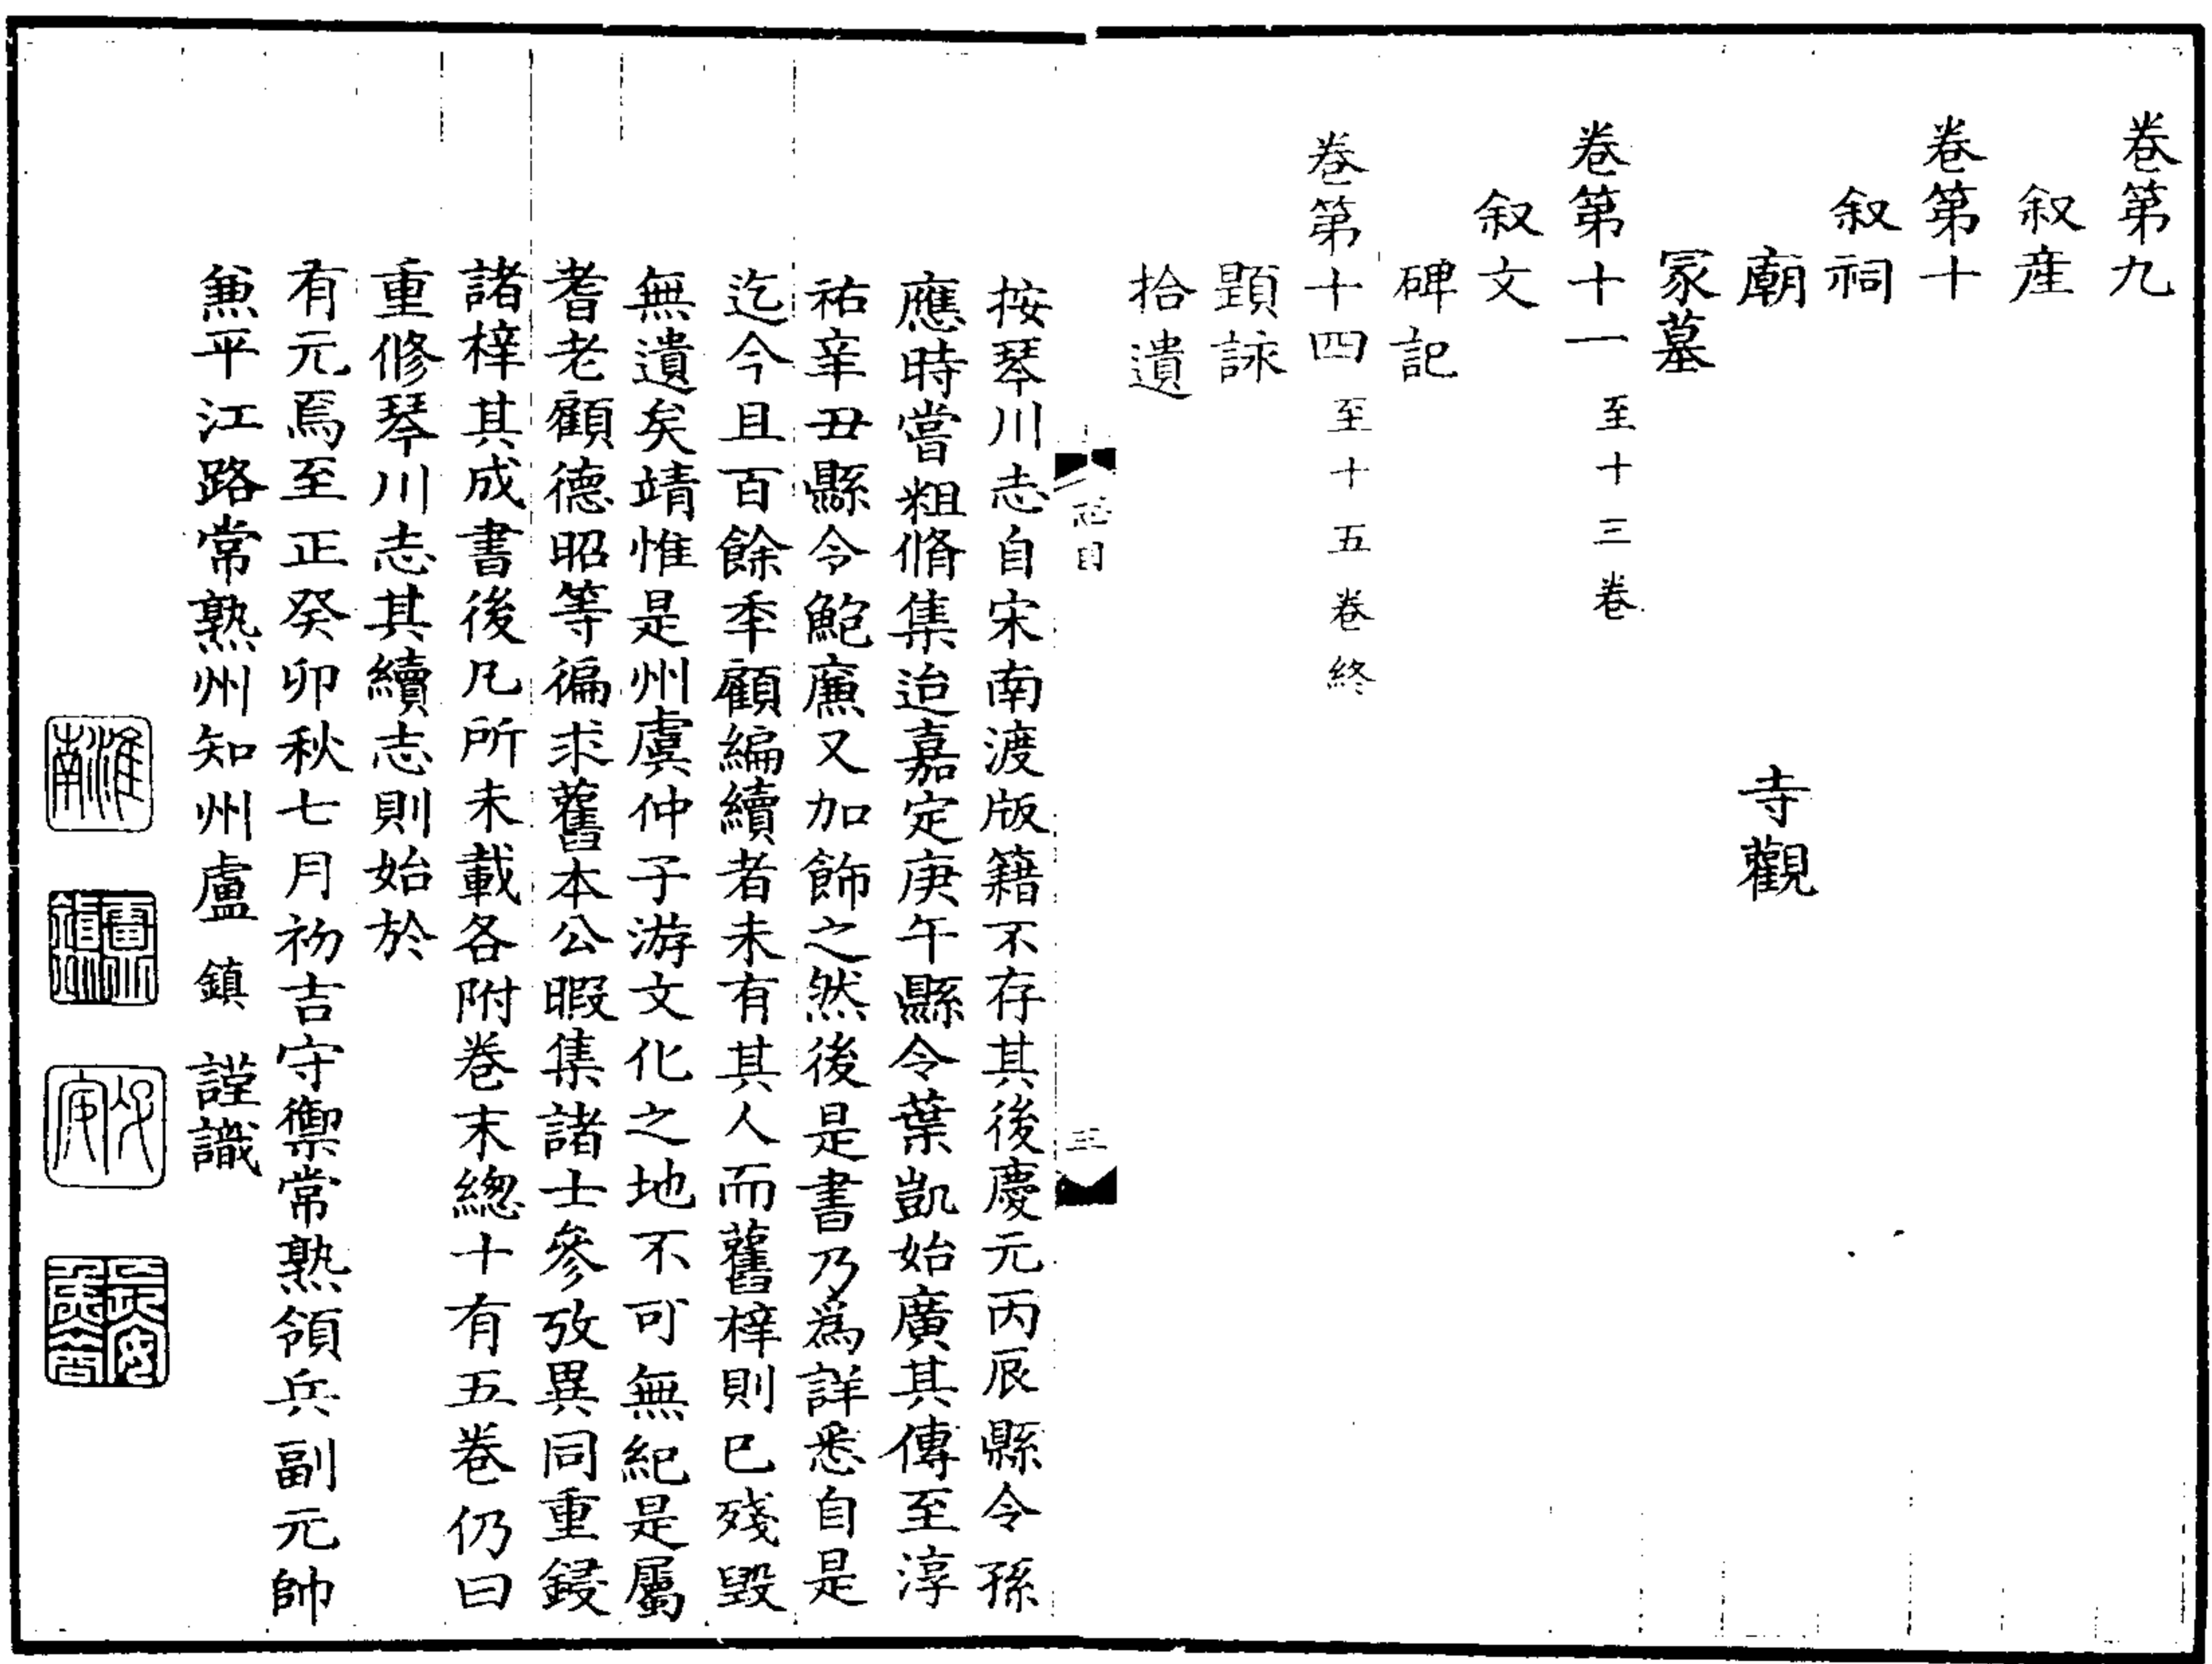 卷第九
叙產
卷第十
叙祠
廟 寺觀
冢墓
卷第十一 至十三卷
叙文
碑記
卷第十四 至十五卷終
題詠
拾遺
志目
三
按琴川志自宋南渡版籍不存其後慶元丙辰縣令孫
應時嘗粗脩集迨嘉定庚午縣令葉凱始廣其傳至淳
祐辛丑縣令鮑廉又加飾之然後是書乃爲詳悉自是
迄今且百餘年顧編續者未有其人而舊梓則已殘毀
無遺矣靖惟是州虞仲子游文化之地不可無紀是屬
耆老顧德昭等徧求舊本公暇集諸士參攷異同重鋟
諸梓其成書後凡所未載各附卷末總十有五卷仍曰
重修琴川志其續志則始於
有元焉至正癸卯秋七月初吉守禦常熟領兵副元帥
兼平江路常熟州知州盧鎮謹識
淮南